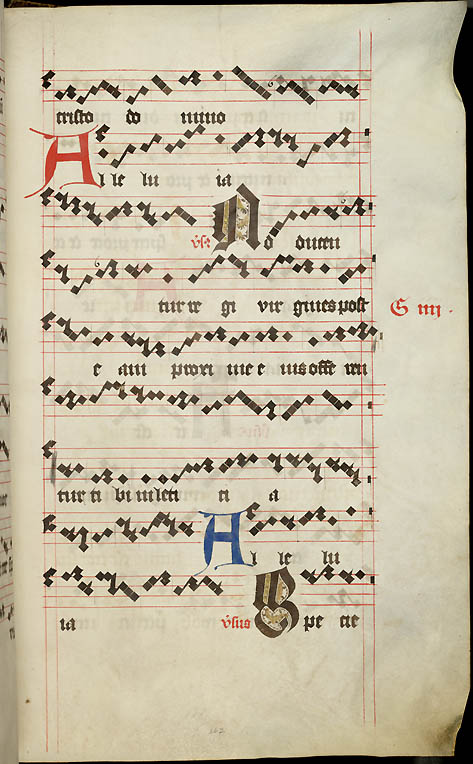 cristo do mino
Al le lu ia
v̄s: Ad ducen
tur re gi vir gines post
G iiij .
e am proxi me e ius offe ren
tur ti bi in leti ti a
Al le lu
ia v̄sus Spe cie
162